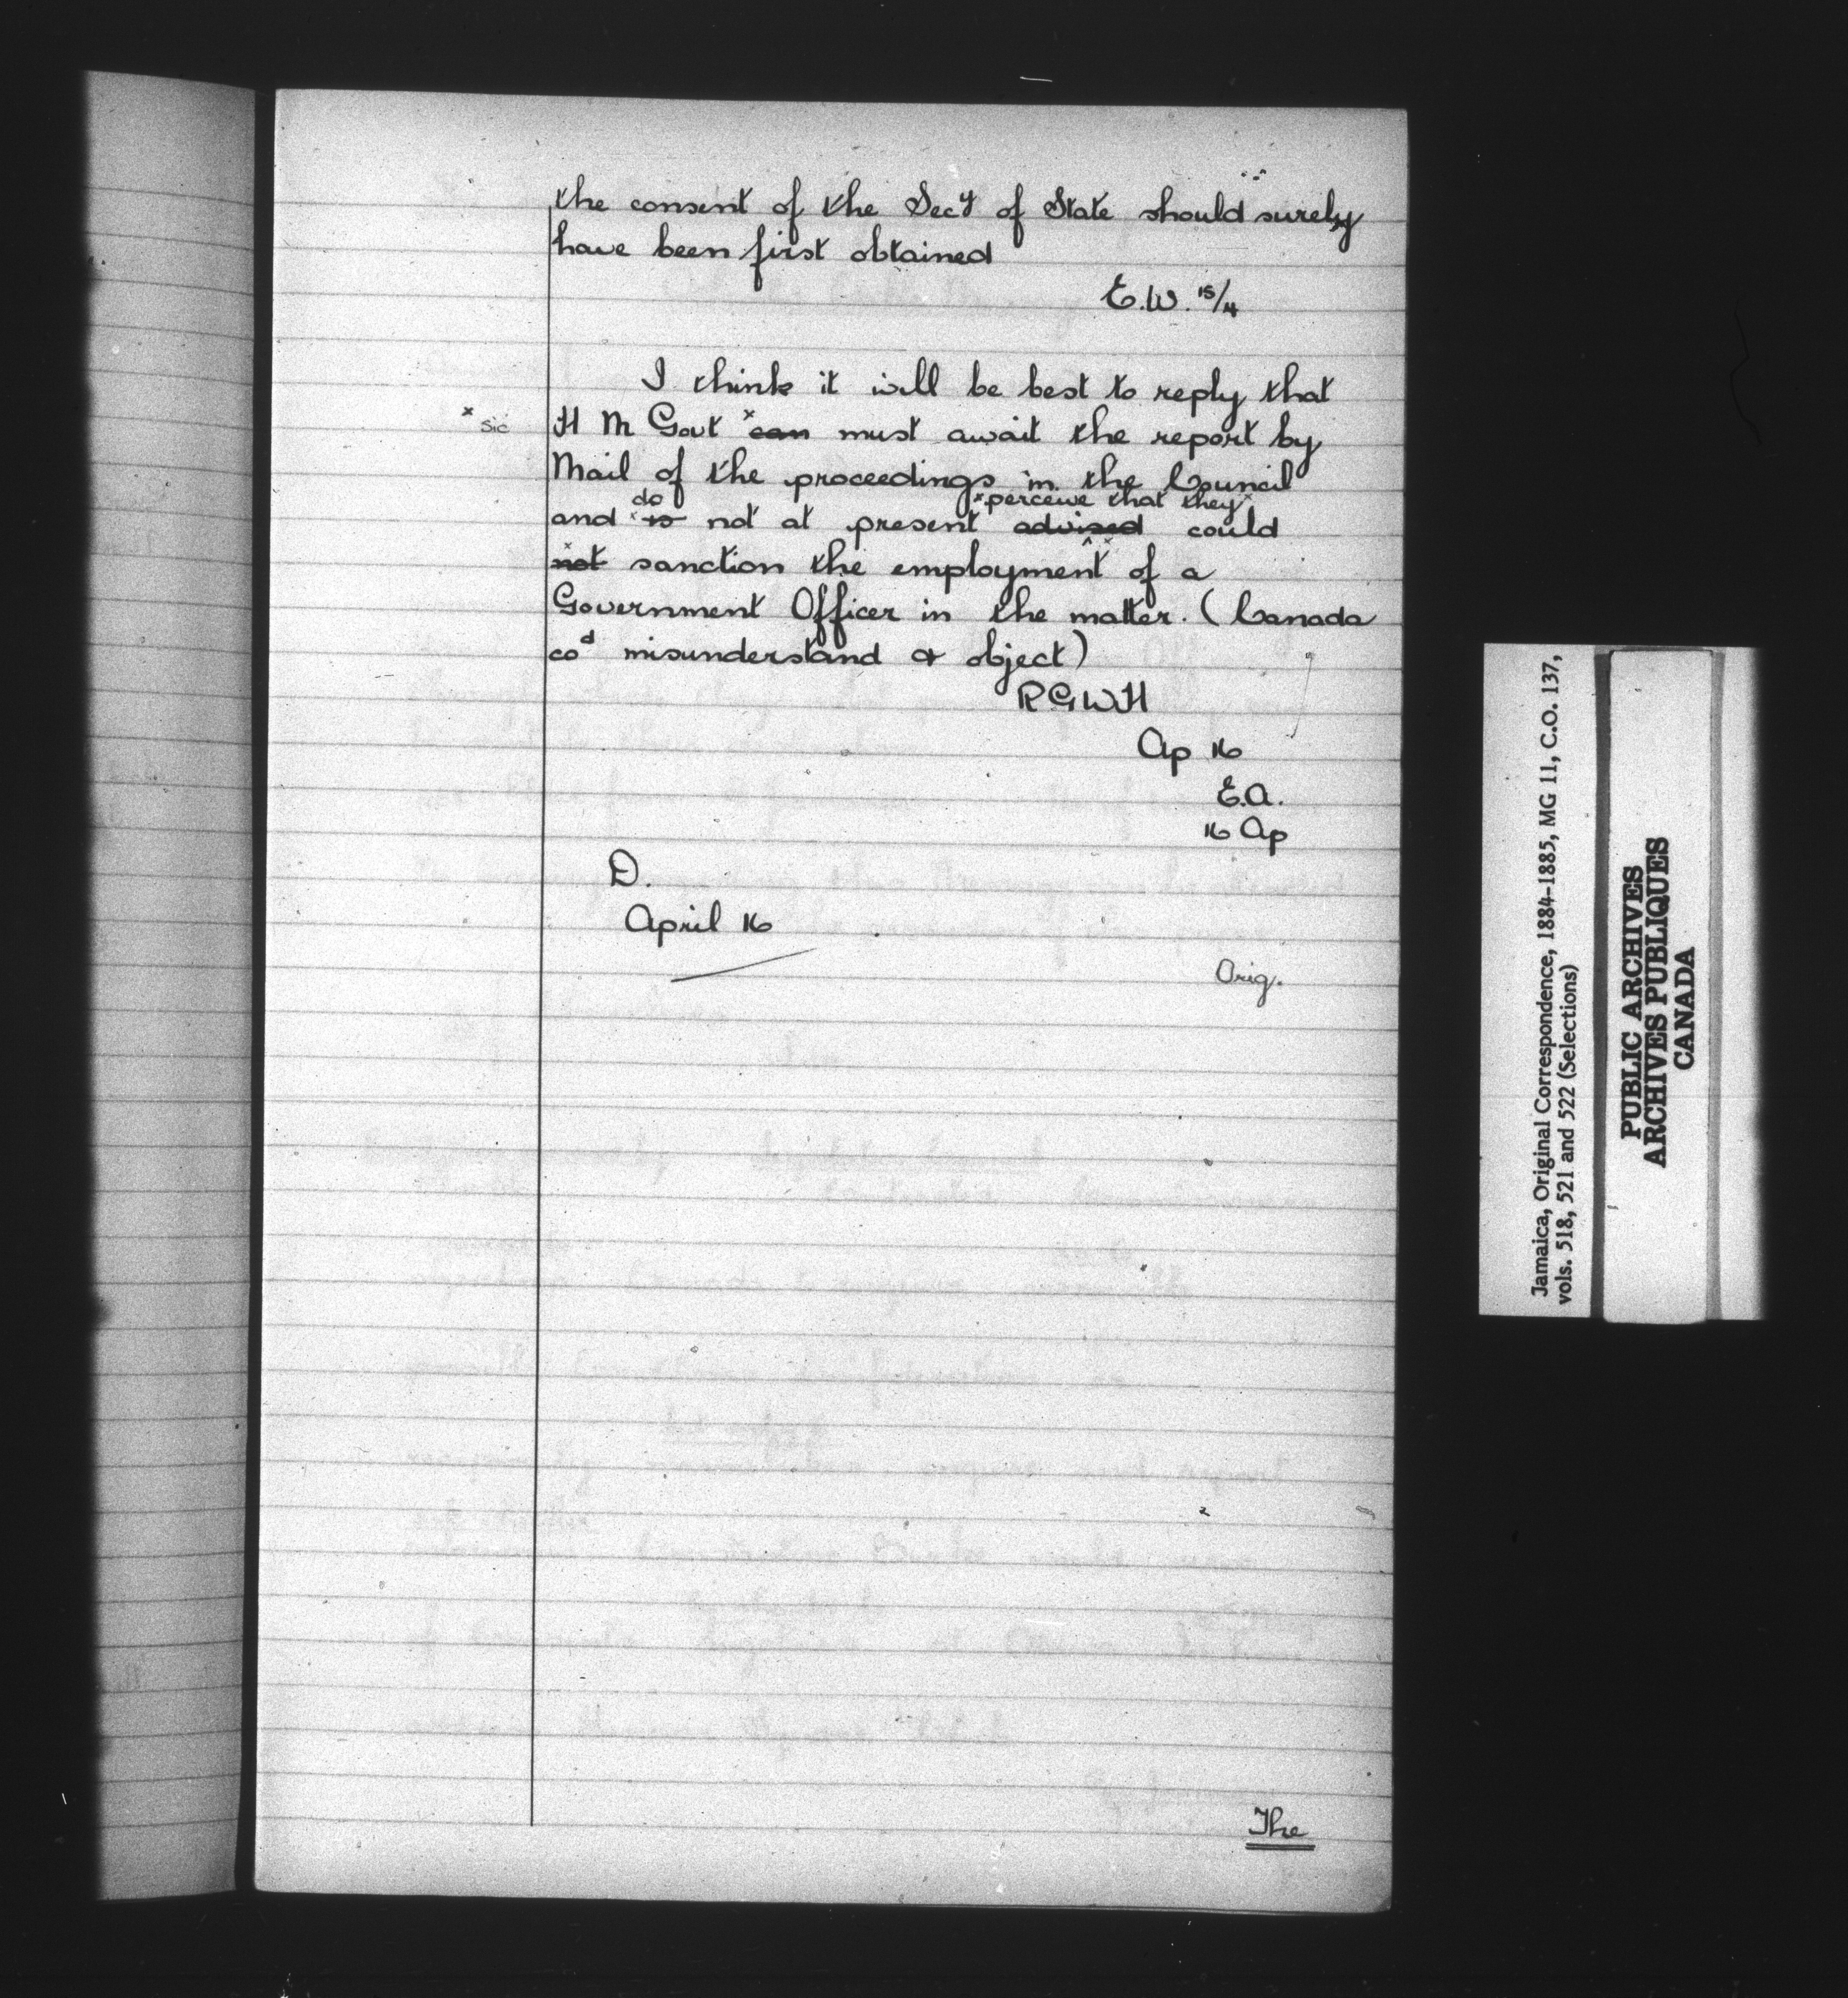 the consent of the Secy of State should surely
have been first obtained
E.W. 15/4
I think it will be best to reply that
x sic
H M Govt x can must await the report by
Mail of the proceedings in the Council
do x perceive that they x
and x is not at present advised could
x
not sanction the employment of a
Government Officer in the matter. (Canada
cod misunderstand & object)
RGWH
Ap 16
E.A.
16 Ap
D.
April 16
Orig.
The
Jamaica, Original Correspondence, 1884-1885, MG 11, C.O. 137,
vols. 518, 521 and 522 (Selections)
PUBLIC ARCHIVES
ARCHIVES PUBLIQUES
CANADA